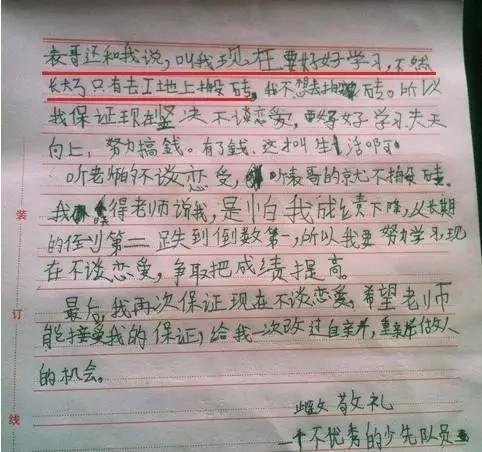 表哥还和我说，叫我现在要好好学习，不然
长大了只有去工地上搬砖。我不想去搬砖。所以
我保证现在坚决不谈恋爱，要好好学习天天
向上，努力搞錢。有了錢，这才叫生活啊
听老师的不谈恋爱，听表哥的 不搬砖。
我 得老师说我，是怕我成绩下降，从长期
的倒 第二跌到倒数第一，所以我要努力学习，现
在不谈恋爱，争取把成绩提高。
最后，我再次保证现在不谈恋爱。希望老师
能接受我的保证，给我一次改过自 ，重 做人
的机会。
装
订
线
敬礼
一个不优秀的少先队员